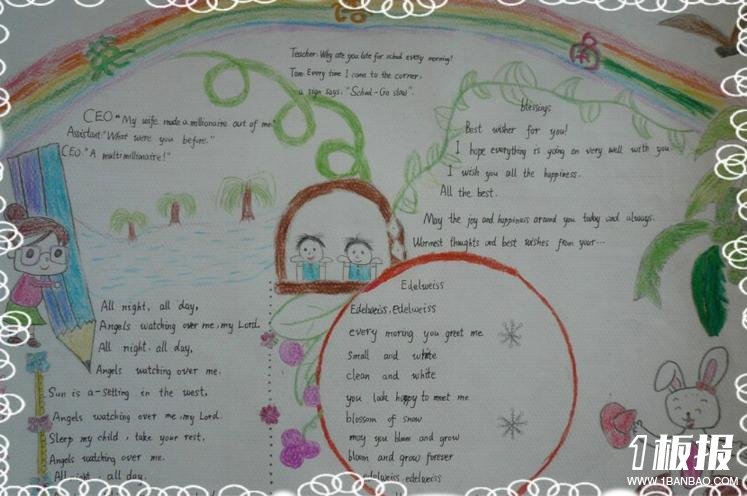 Teacher: Why are you late for school every morning?
Tom: Every time I come to the corner,
a sign says, "School-Go slow".
CEO: "My wife made a millionaire out of me."
Assistant: "What were you before."
CEO: "A multimillionaire!"
blessings
Best wisher for you!
I hope everything is going on very well with you
I wish you all the happiness.
All the best.
May the joy and happiness around you today and always.
Warmest thoughts and best wishes from your...
All night, all day,
Angels watching over me, my Lord.
All night, all day,
Angels watching over me.
Sun is a-setting in the west,
Angels watching over me, my Lord.
Sleep my child, take your rest,
Angels watching over me.
All night, all day,
Edelweiss
Edelweiss, Edelweiss
every moring you greet me
small and white
clean and white
you look happy to meet me
blossom of snow
may you bloom and grow
bloom and grow forever
edelweiss, edelweiss
1板报
WWW.1BANBAO.COM